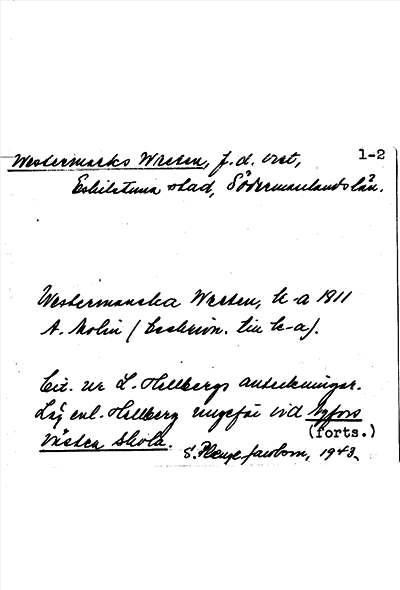 Westermarks Wreten, f.d. vret, 1-2
Eskilstuna stad, Södermanlands län.
Westermanska Wreten, k-a 1811
A. Molin (Beskrivn. till k-a).
Cit. ur L. Hellbergs anteckningar.
Låg enl. Hellberg ungefär vid Nyfors
(forts.)
västra skola.
S. Plenge Jacobson, 1943.